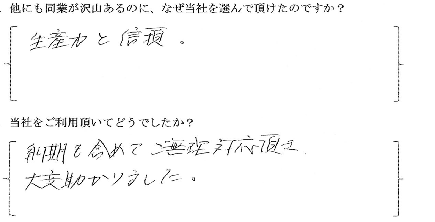 他にも同業が沢山あるのに、なぜ当社を選んで頂けたのですか？
生産力と信頼。
当社をご利用頂いてどうでしたか？
納期も含めてご無理対応頂き
大変助かりました。